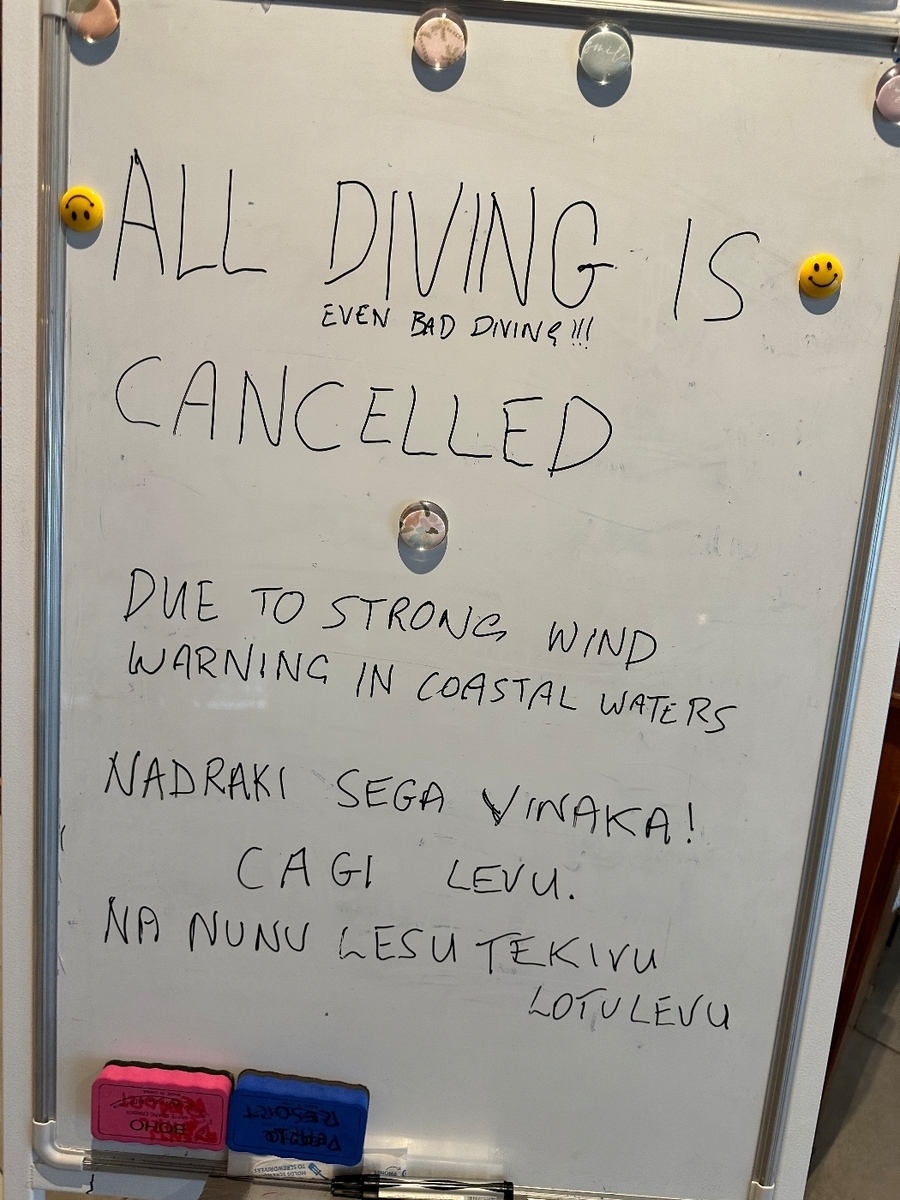 ALL DIVING IS
EVEN BAD DIVING!!!
CANCELLED
DUE TO STRONG WIND
WARNING IN COASTAL WATERS
NADRAKI SEGA VINAKA!
CAGI LEVU.
NA NUNU LESU TEKIVU
LOTULEVU
BOHO
RESORT